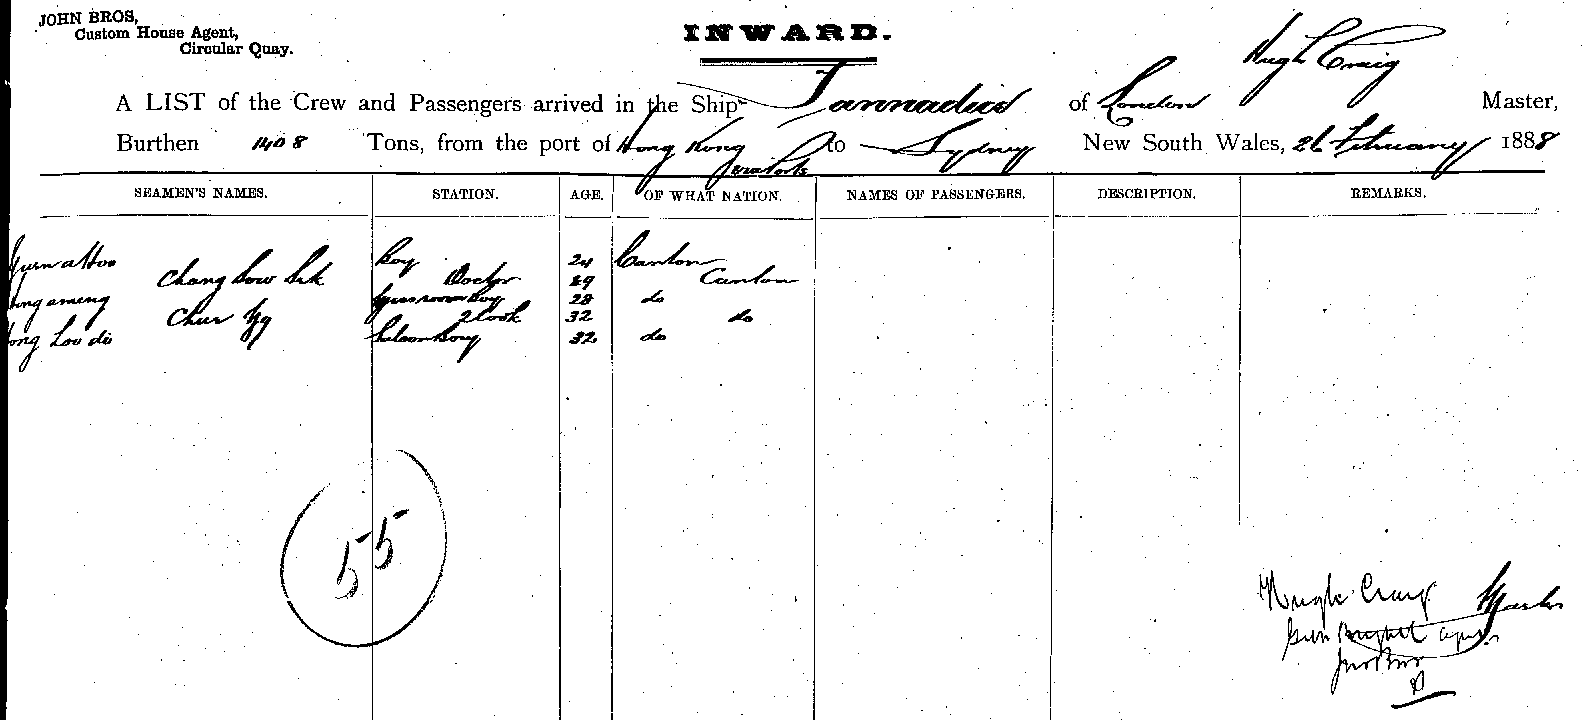 JOHN BROS,
Custom House Agent,
Circular Quay.
INWARD.
Hugh Craig
A LIST of the Crew and Passengers arrived in the Ship Tannadice of London Master,
Burthen 1408 Tons, from the port of Hong Kong via Ports to Sydney New South Wales, 26 February 1888
SEAMEN'S NAMES. STATION. AGE. OF WHAT NATION. NAMES OF PASSENGERS. DESCRIPTION. REMARKS.
Boy 24 Canton
Chang Sow Doctor 29 Canton
28 do
Chur Cook 32 do
Saloon boy 32 do
55
Hugh Craig Master